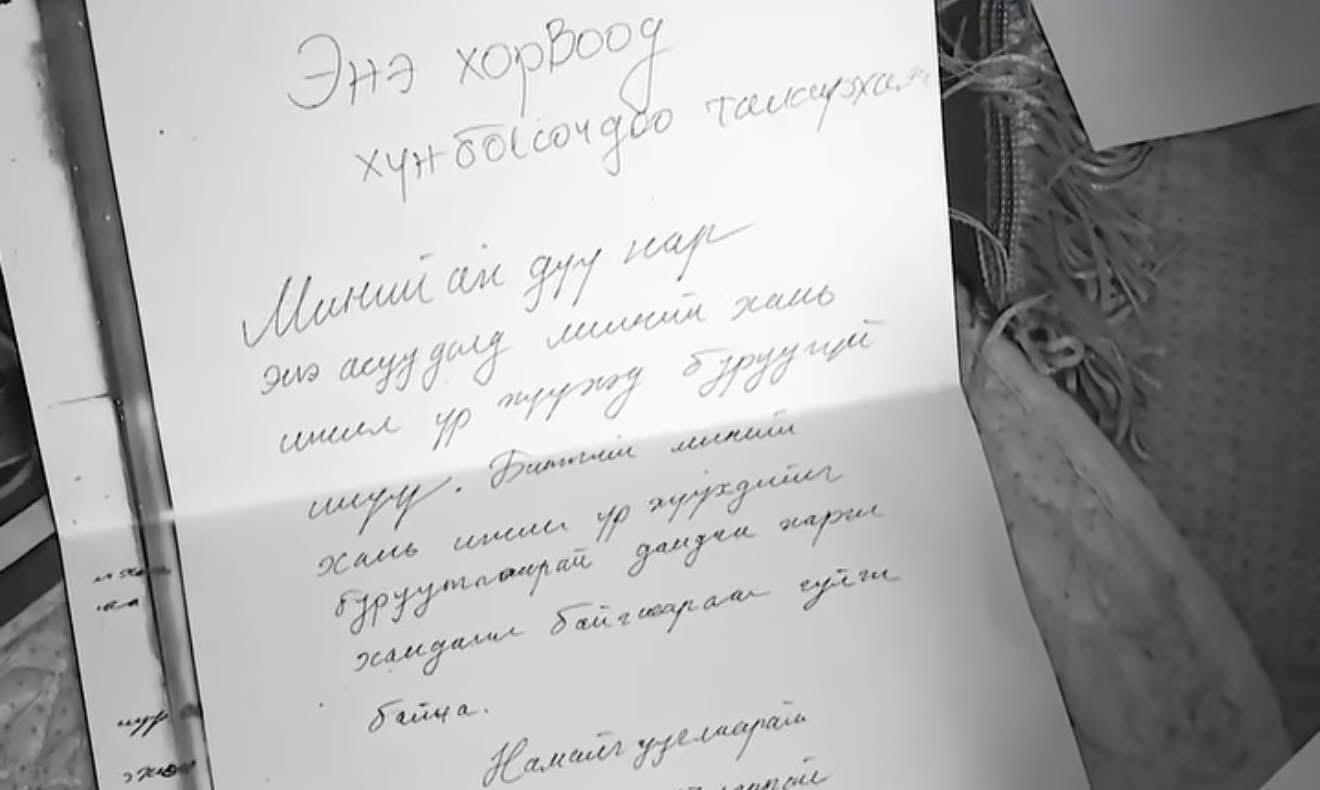 Энэ хорвоод
хүн болсондоо талархалтай
Миний ах дүү нар
энэ асуудалд миний хань
ижил үр хүүхэд буруугүй
шүү. Битгий миний
хань ижил үр хүүхдийг
буруутгаарай дандаа харж
хандаж байгаараай гуйж
байна.
Намайг уучлаарай